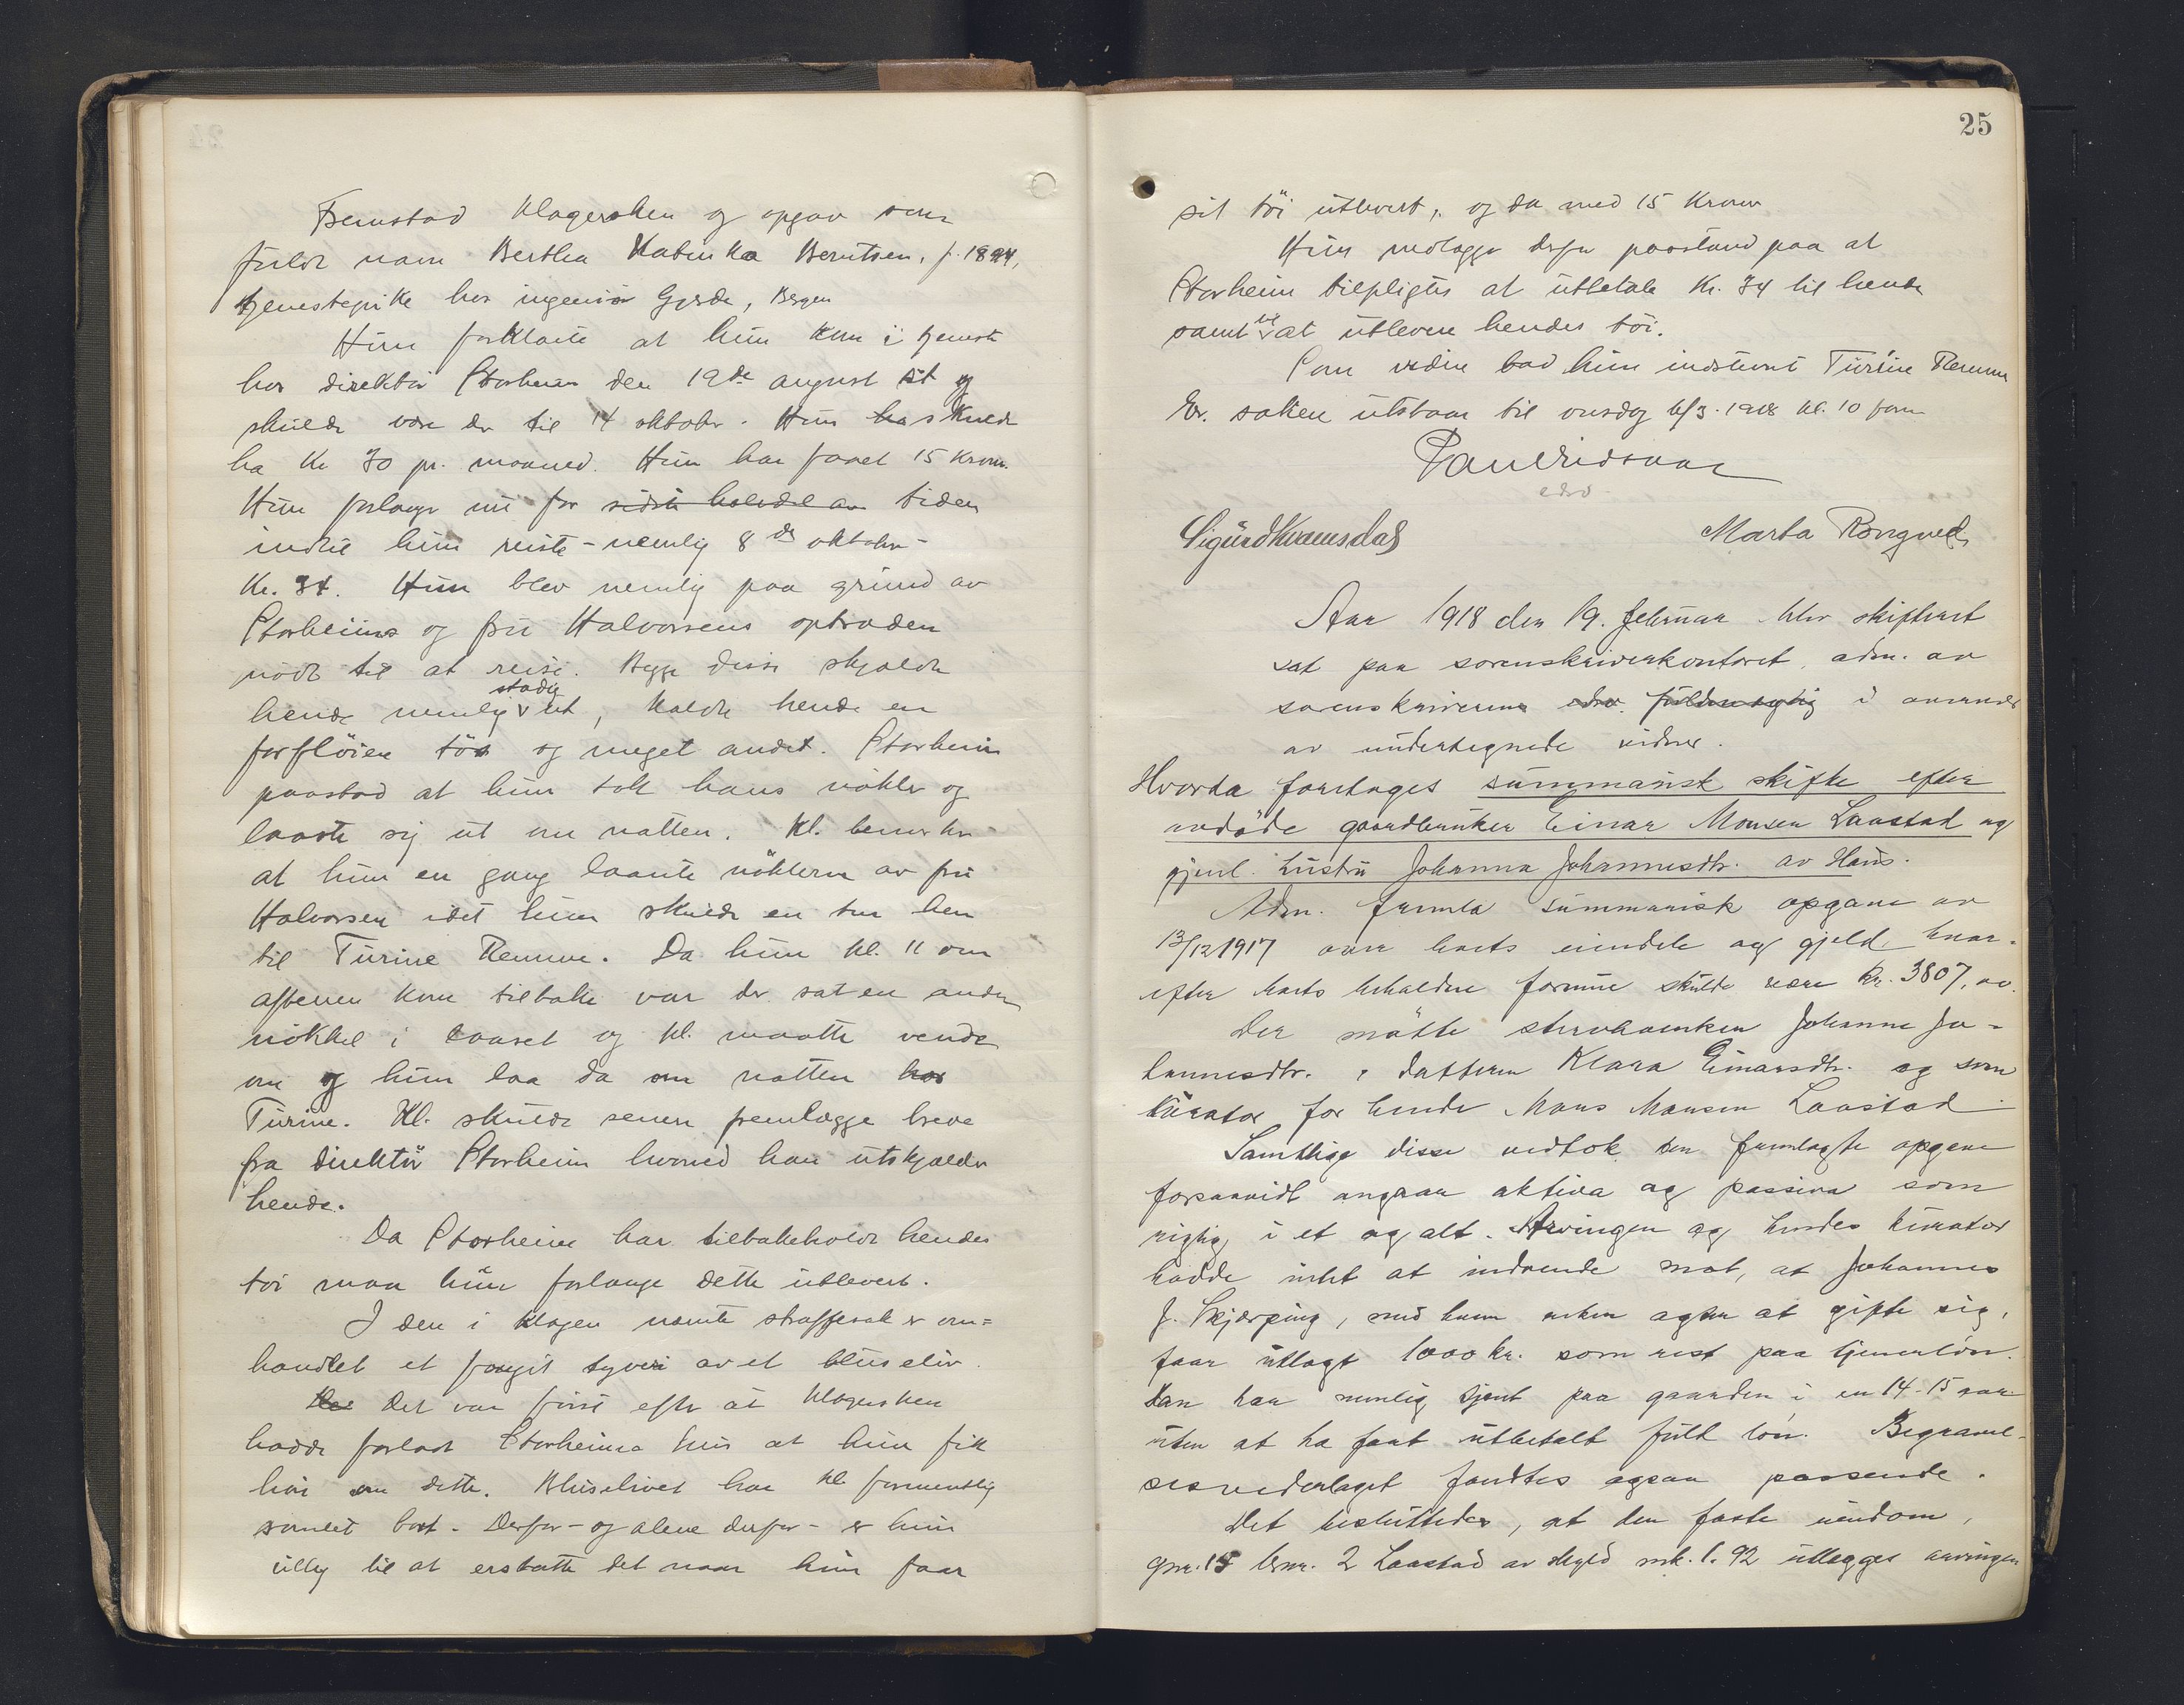 Fremstod klagersken og opgav som
fulde navn Bertha Katinka Berntsen, f. 1894,
tjenestepike hos ingeniør Gjerde, Bergen
Hun forklarte at hun kom i tjeneste
hos direktör Storheim den 19de august sit og
skulde være der til 14 oktober. Hun ha skulde
ha kr 30 pr. maaned. Hun har faaet 15 kron.
Hun forlanger nu for sidste halvdel av tiden
indtil hun reiste - nemlig 8de oktober -
kr. 34. Hun blev nemlig paa grund av
Storheims og fru Halvorsens optræden
nödt til at reise. Begge disse skjældte
hende nemlig stadig ut, kaldte hende en
forflöien tös og meget andet. Storheim
paastod at hun tok hans nökler og
laaste sig ut om natten. Kl. bemerker
at hun en gang laante nöklerne av fru
Halvorsen idet hun skulde en tur hen
til Turine Remme. Da hun kl. 11 om
aftenen kom tilbake var der sat en anden
nökkel i laaset og kl. maatte vende
om og hun laa da om natten hos
Turine. Kl. skulde senere fremlægge breve
fra direktör Storheim hvorved han utskjælder
hende.
Da Storheim har tilbakeholdt hendes
töi maa hun forlange dette utlevert.
I den i klagen nævnte straffesak er om=
handlet et foregit tyveri av et bluseliv.
Det var först efter at klagersken
hadde forlatt Storheims hus at hun fik
höre om dette. Bluselivet har kl. formentlig
somlet bort. Derfor - og alene derfor - er hun
villig til at erstatte det naar hun faar
25
sit töi utlevert, og da med 15 kroner
Hun nedlægger derfor paastand paa at
Storheim tilpligtes at utbetale kr. 34 til hende
samt til at utlevere hendes töi.
Som vidne bad hun indstevnt Turine Remme
Er. saken utstaar til onsdag 6/3. 1918 kl. 10 form
edsv
Sigurd Kvamsdal Marta Rongved
Aar 1918 den 19. februar blev skifteret
sat paa sorenskriverkontoret, adm. av
sorenskriveren edsv. fuldmægtig i overvær
av undertegnede vidner.
Hvorda foretages summarisk skifte efter
avdöde gaardbruker Einar Monsen Laastad og
gjenl. hustru Johanna Johannesdtr. av Haus.
Adm. fremla summarisk opgave av
13/12 1917 over boets eiendele og gjeld, hvor-
efter boets beholdne formue skulde være kr. 3807,00.
Der mötte stervboenken Johanna Jo-
hannesdtr., datteren Klara Einarsdtr. og som
kurator for hende Mons Monsen Laastad
Samtlige disse vedtok den fremlagte opgave
forsaavidt angaar aktiva og passiva som
rigtig i et og alt. Arvingen og hendes kurator
hadde intet at indvende mot, at Johannes
J. Skjerping, med hvem enken agter at gifte sig,
faar utlagt 1000 kr. som rest paa tjenerlön.
Han har nemlig tjent paa gaarden i en 14-15 aar
uten at ha faat utbetalt fuld lön. Begravel-
sesvederlaget fandtes ogsaa passende.
Det besluttedes, at den faste eiendom,
gnr. 15 brnr. 2 Laastad av skyld mk. 1.92 utlægges arvingen